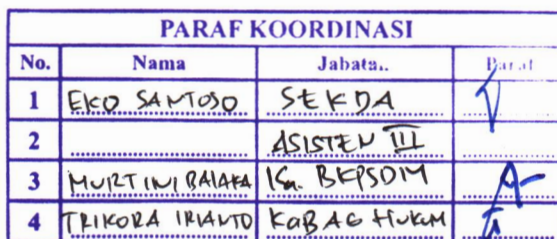 PARAF KOORDINASI
No. Nama Jabata.. Paraf
1 EKO SANTOSO SEKDA
2 ASISTEN III
3 MURTINI BALAKA Ka. BKPSDM
4 TRIKORA IRIANTO KABAG HUKUM